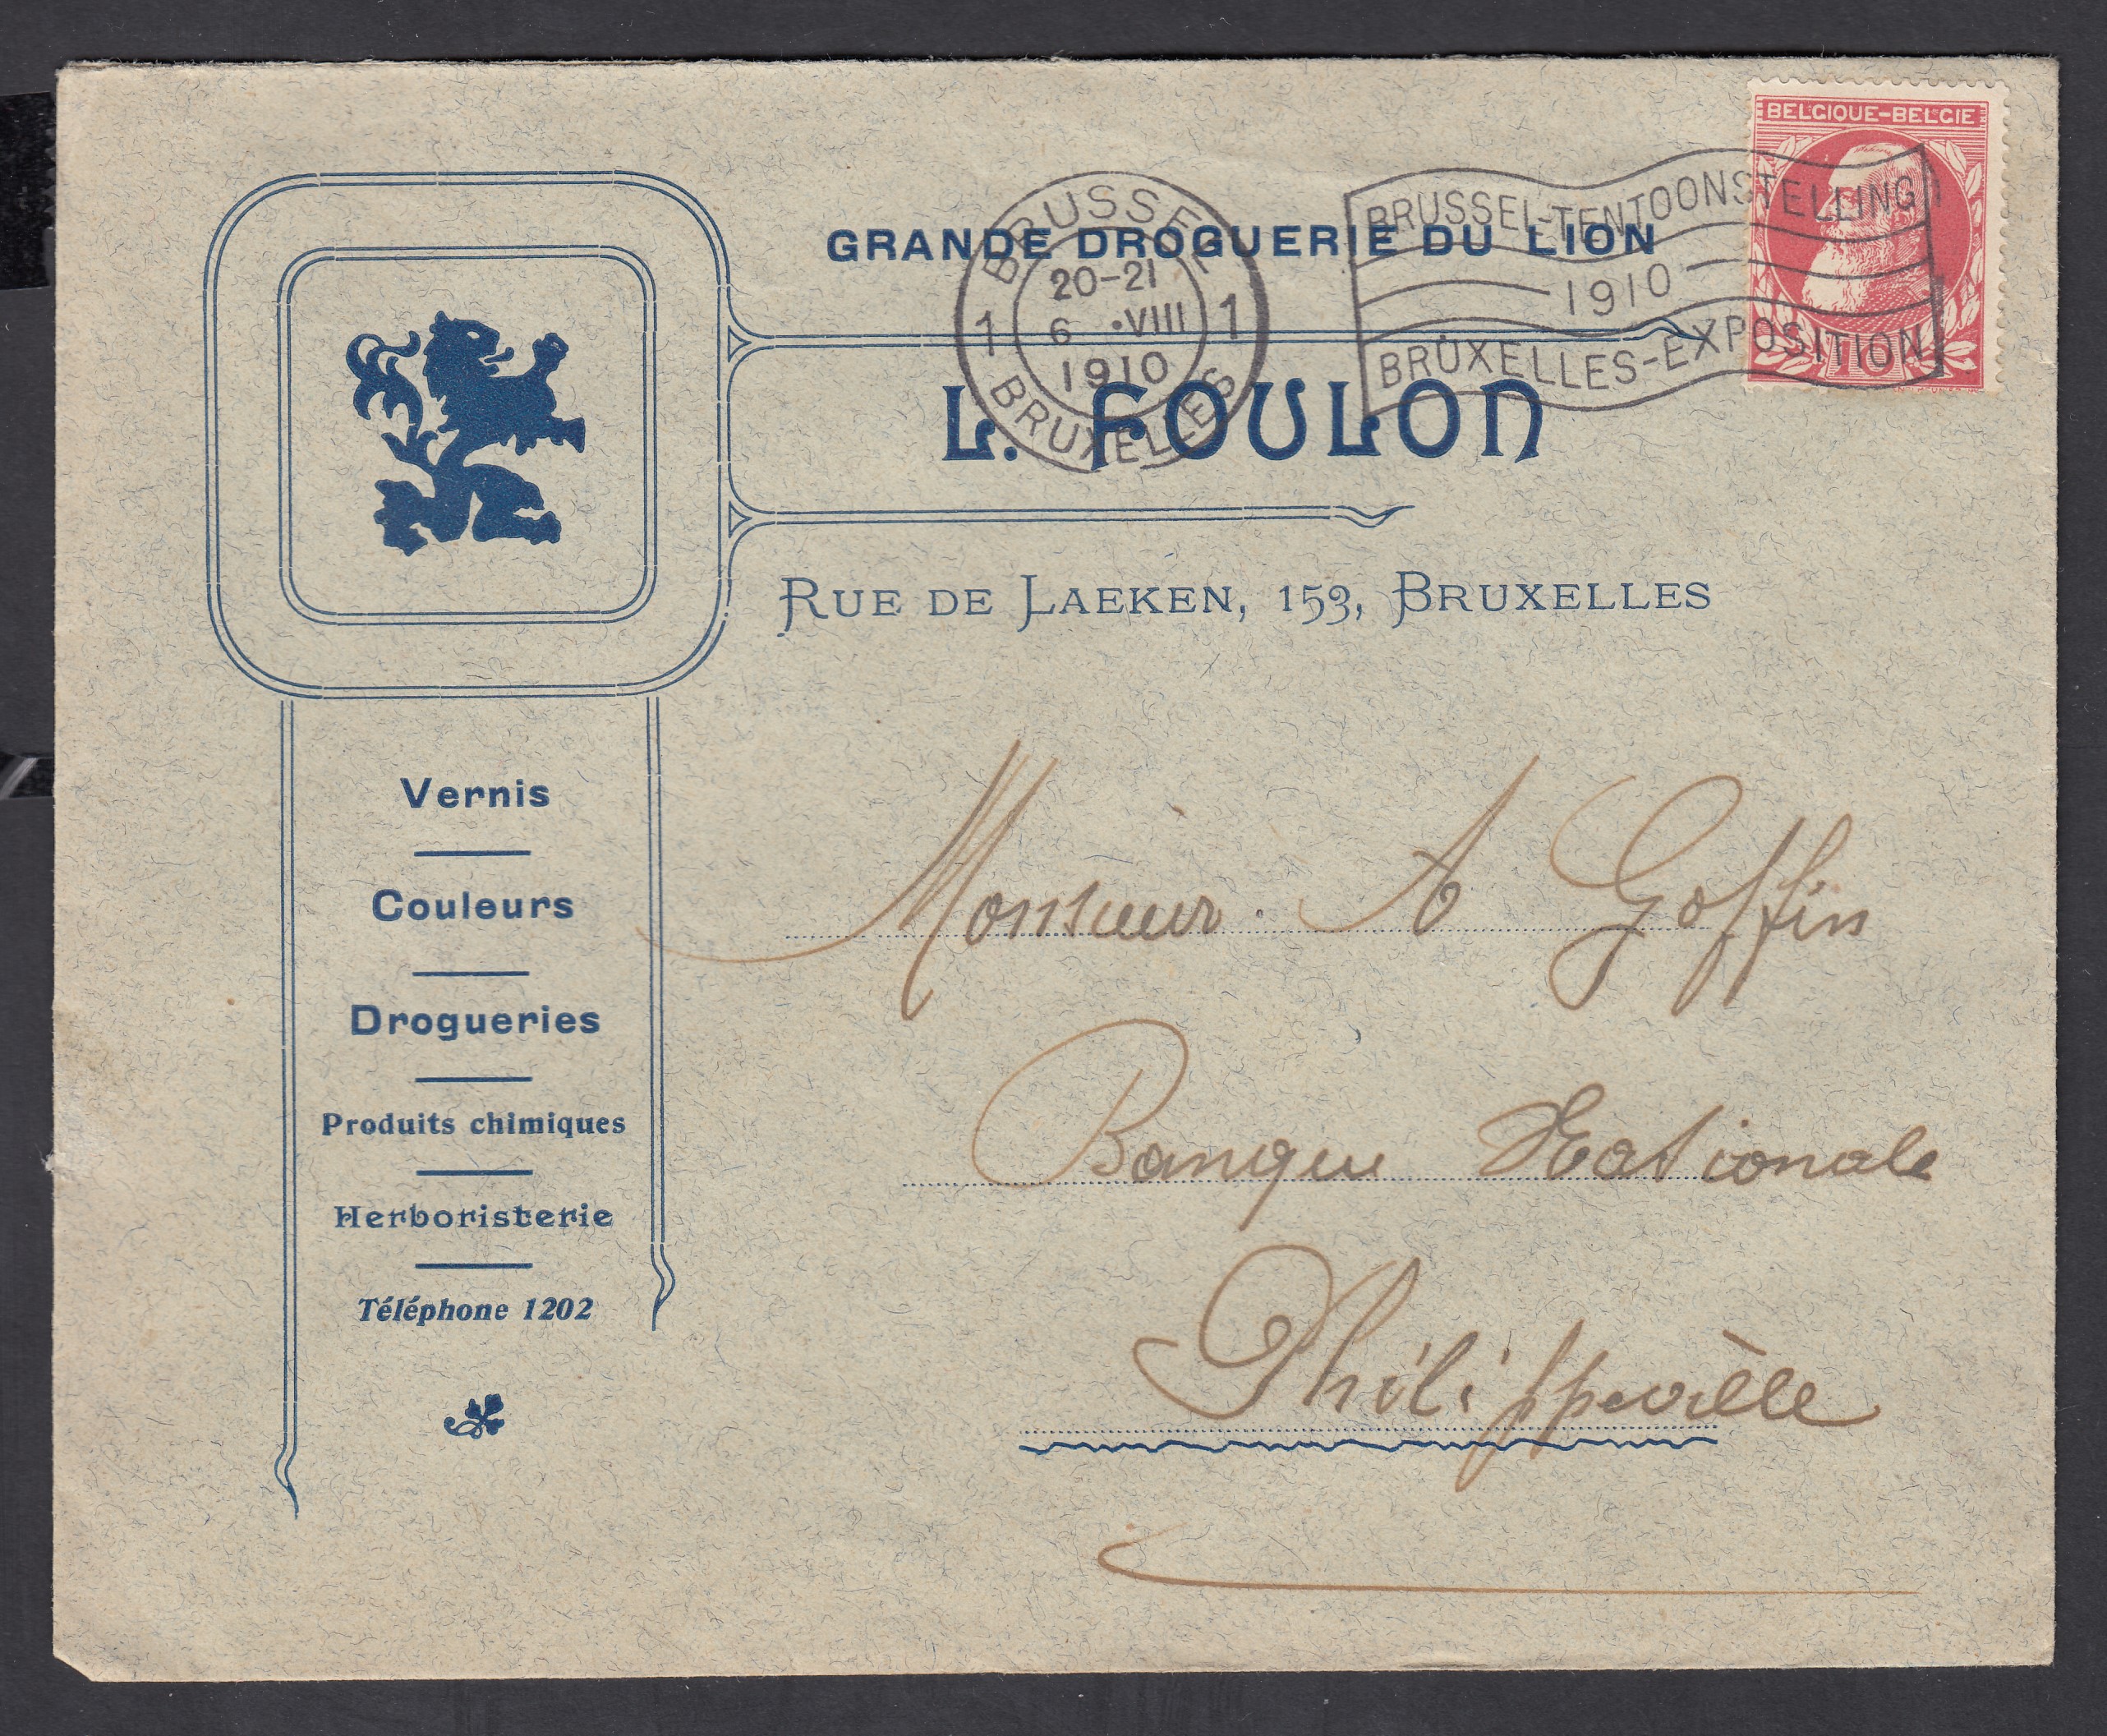 BELGIQUE-BELGIE
10
BRUSSEL-TENTOONSTELLING
1910
BRUXELLES-EXPOSITION
BRUSSEL
20-21
1 6 •VIII 1
1910
BRUXELLES
GRANDE DROGUERIE DU LION
L. FOULON
RUE DE LAEKEN, 153, BRUXELLES
Vernis
Couleurs
Drogueries
Produits chimiques
Herboristerie
Téléphone 1202
Monsieur A Goffin
Banque Nationale
Philippeville